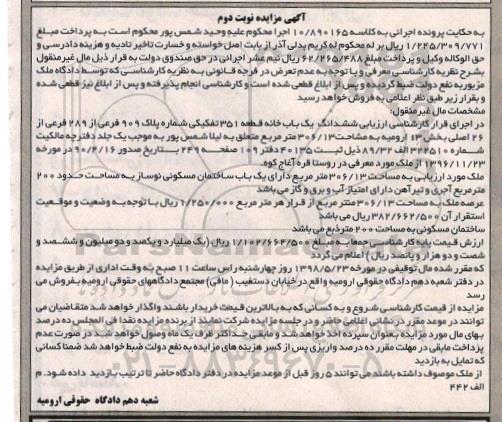 آگهی مزایده نوبت دوم
به حکایت پرونده اجرائی به کلاسه ۱۰/۸۹۰۱۶۵ اجرا محکوم علیه وحید شمس پور محکوم است به پرداخت مبلغ
۱/۲۲۵/۳۰۹/۷۷۱ ریال بر له محکوم له کریم یدلی آذر از بابت اصل خواسته و خسارت تاخیر تادیه و هزینه دادرسی و
حق الوکاله وکیل و پرداخت مبلغ ۶۲/۲۶۵/۴۸۸ ریال نیم عشر اجرائی در حق صندوق دولت به قرار ذیل مال غیر منقول
بشرح نظریه کارشناسی معرفی و با توجه به عدم تعرض در فرجه قانونی به نظریه کارشناسی که توسط دادگاه ملک
مزبور به نفع دولت ضبط گردیده و پس از ابلاغ قطعی شده است و کارشناسی انجام پذیرفته و پس از ابلاغ نیز قطعی شده
و بقرار زیر طبق نظر اعلامی به فروش خواهد رسید
مشخصات مال غیر منقول:
در اجرای قرار کارشناسی ارزیابی ششدانگ یک باب خانه قطعه ۳۵۱ تفکیکی شماره پلاک ۹۰۹ فرعی از ۲۸۹ فرعی از
۲۶ اصلی بخش ۱۳ ارومیه به مشاحت ۳۰۶/۱۳ متر مربع متعلق به لیلا شمس پور به موجب یک جلد دفترچه مالکیت
شماره ۳۲۲۵۱۰ الف ۸۹/۳۲ ذیل ثبت ۴۰۱۳۵ دفتر ۱۰۹ صفحه ۲۴۹ بتاریخ صدور ۹۰/۴/۱۶ در مورخه
۱۳۹۶/۱۱/۲۳ از ملک مورد معرفی در روستا قره آغاج کوه.
ملک مورد ارزیابی به مساحت ۳۰۶/۱۳ متر مربع دارای یک باب ساختمان مسکونی نوساز به مساحت حدود ۲۰۰
متر مربع آجری و تیر آهن دارای امتیاز آب و برق و گاز می باشد
عرصه ملک به مساحت ۳۰۶/۱۳ متر مربع از قرار هر متر مربع ۱/۲۵۰/۰۰۰ ریال با توجه به وضعیت و موقعیت
استقرار آن ۳۸۲/۶۶۲/۵۰۰ ریال می باشد
ساختمان مسکونی به مساحت ۲۰۰ مترذبع می باشد
ارزش قیمت پایه کارشناسی جمعا به مبلغ ۱/۱۰۲/۶۶۲/۵۰۰ ریال (یک میلیارد و یکصد و دو میلیون و ششصد و
شصت و دو هزار و پانصد ریال) اعلام می گردد
که مقرر شده مال توقیفی در مورخه ۱۳۹۸/۵/۲۳ روز چهارشنبه راس ساعت ۱۱ صبح به وقت اداری از طریق مزایده
در دفتر شعبه دهم دادگاه حقوقی ارومیه واقع در خیابان دستغیب (مافی) مجتمع دادگاههای حقوقی ارومیه بفروش می
رسد
مزایده از قیمت کارشناسی شروع و به کسانی که به بالاترین قیمت خریدار باشند واگذار خواهد شد متقاضیان می
توانند در موعد مقرر در نشانی اعلامی حاضر و در جلسه مزایده شرکت نمایند از برنده مزایده نقدا فی المجلس ده درصد
بهای مال مورد مزایده به عنوان سپرده اخذ خواهد شد و مابقی حداکثر ظرف یک ماه وصول خواهد شد در صورت عدم
پرداخت مابقی در مهلت مقرر ده درصد واریزی پس از کسر هزینه های مزایده به نفع دولت ضبط خواهد شد ضمنا کسانی
که تمایل به بازدید
از ملک موصوف داشته باشند می توانند ۵ روز قبل از موعد مزایده در دفتر دادگاه حاضر تا ترتیب بازدید داده شود. م
الف ۴۴۲
شعبه دهم دادگاه حقوقی ارومیه